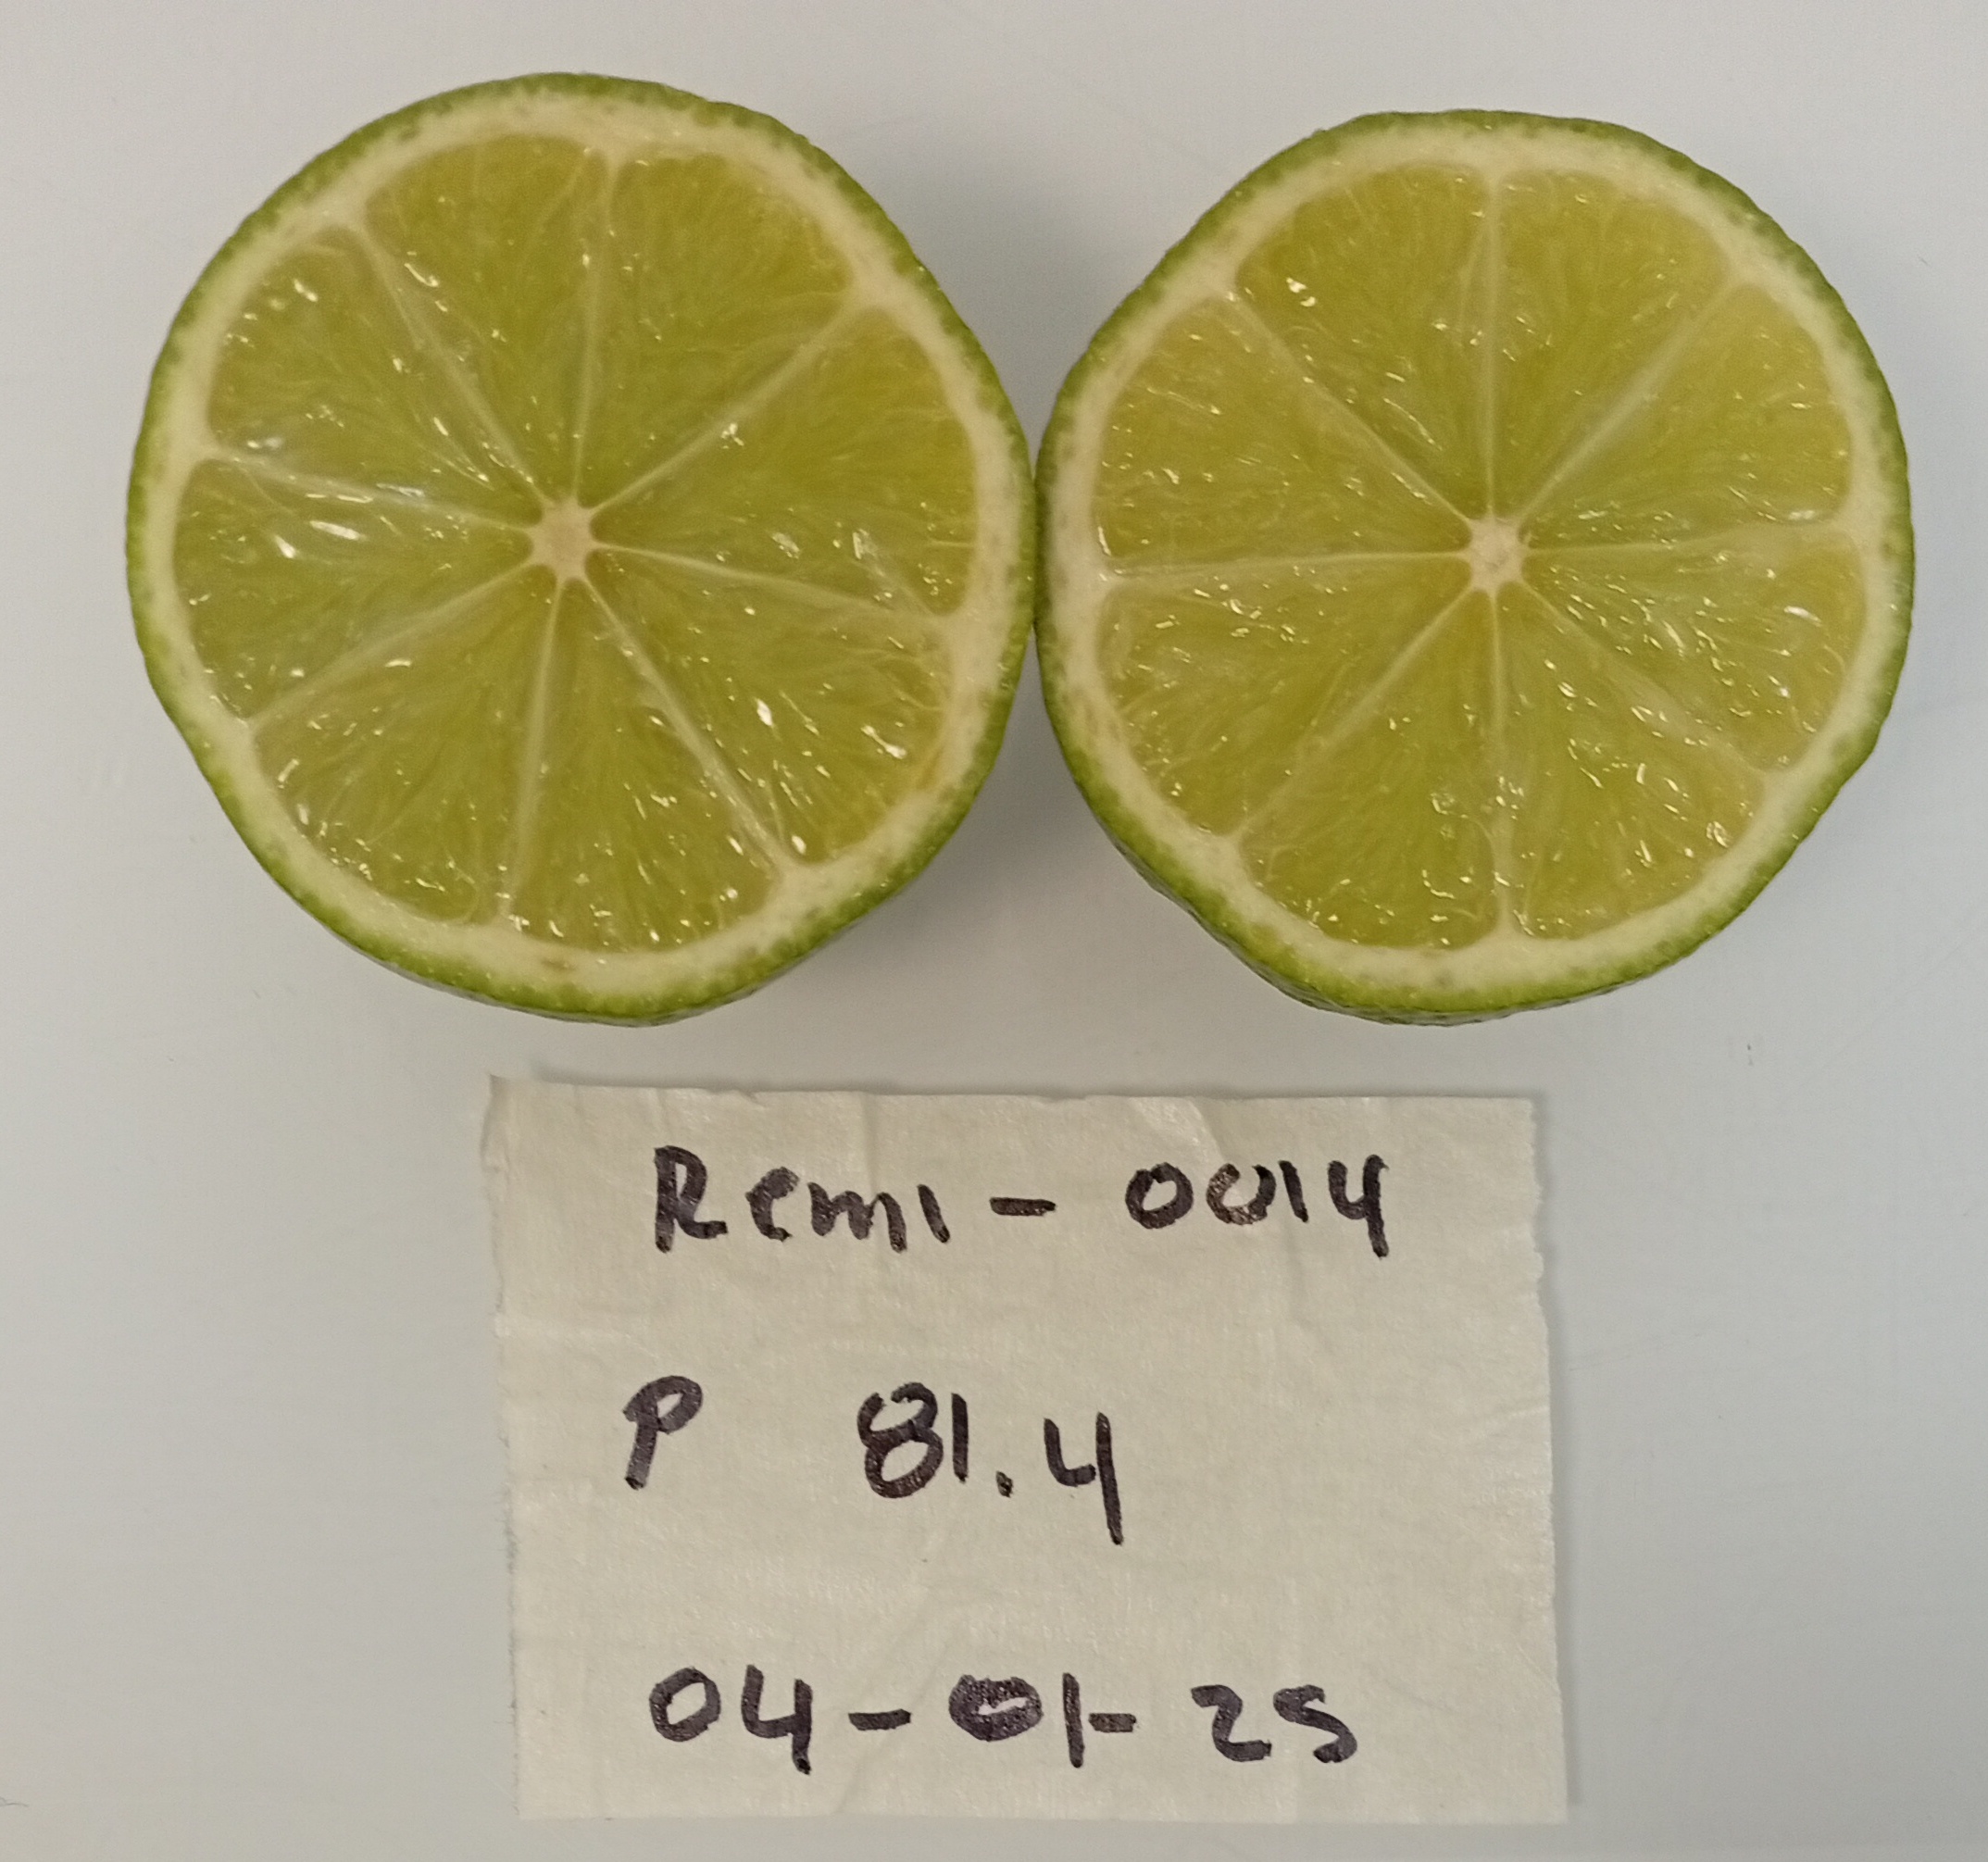 Remi - 0014
P 81.4
04-01-25